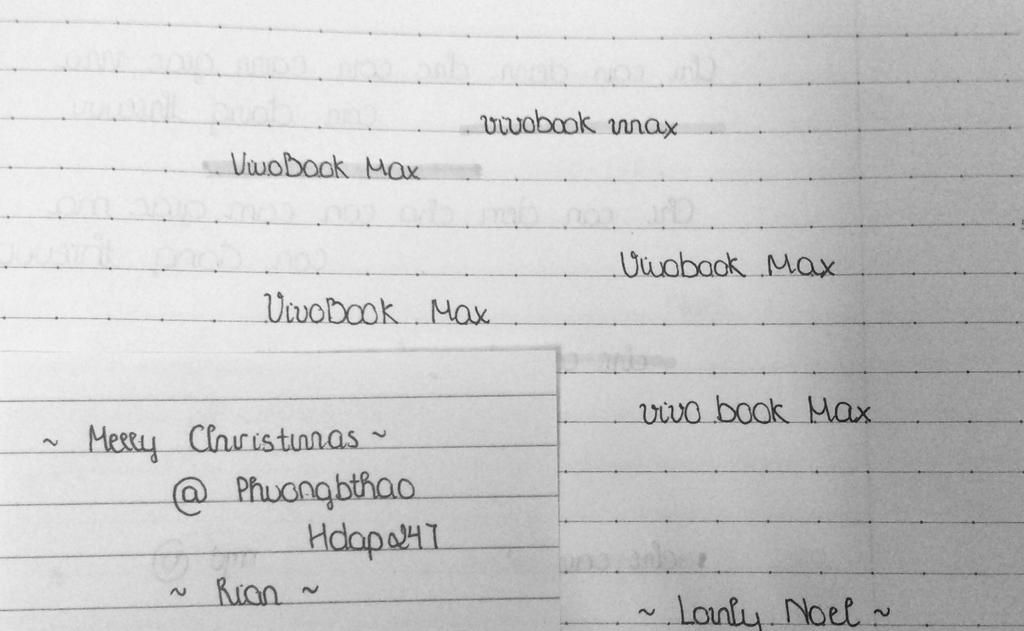 vivobook max
VivoBook Max
Vivobook Max
VivoBook Max
vivo book Max
~ Merry Christmas ~
@ Phuongbthao
Hdapa247
~ Rian ~
~ Lonly Noel ~